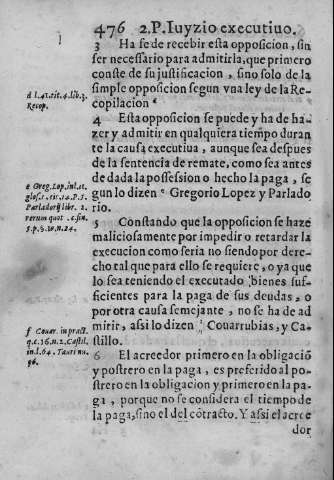 476 2.P. Iuyzio executiuo.
3 Ha se de recebir esta opposicion, sin
ser necessario para admitirla, que primero
conste de su justificacion, sino solo de la
simple opposicion segun vna ley de la Re-
copilacion d
d l.41.tit.4.lib.3.
Recop.
4 Esta opposicion se puede y ha de ha-
zer y admitir en qualquiera tiempo duran
te la causa executiua, aunque sea despues
de la sentencia de remate, como sea antes
de dada la possession o hecho la paga, se
gun lo dizen e Gregorio Lopez y Parlado
rio.
e Greg. Lop. in l.
glos.1. tit. 14. P.5.
Parlador. libr. 2.
rerum quot. c. fin.
5.p.§.10.n.24.
5 Constando que la opposicion se haze
maliciosamente por impedir o retardar la
execucion como seria no siendo por dere-
cho tal que para ello se requiere, o ya que
lo sea teniendo el executado bienes suf-
ficientes para la paga de sus deudas, o
por otra causa semejante, no se ha de ad
mitir, assi lo dizen f Couarrubias, y Ca-
stillo.
f Couar. in pract.
q.c.16.n.2. Castil.
in l.64. Tauri nu.
96.
6 El acreedor primero en la obligació
y postrero en la paga, es preferido al po-
strero en la obligacion y primero en la pa-
ga, porque no se considera el tiempo de
la paga, sino el del cótracto. Y assi el acree
dor